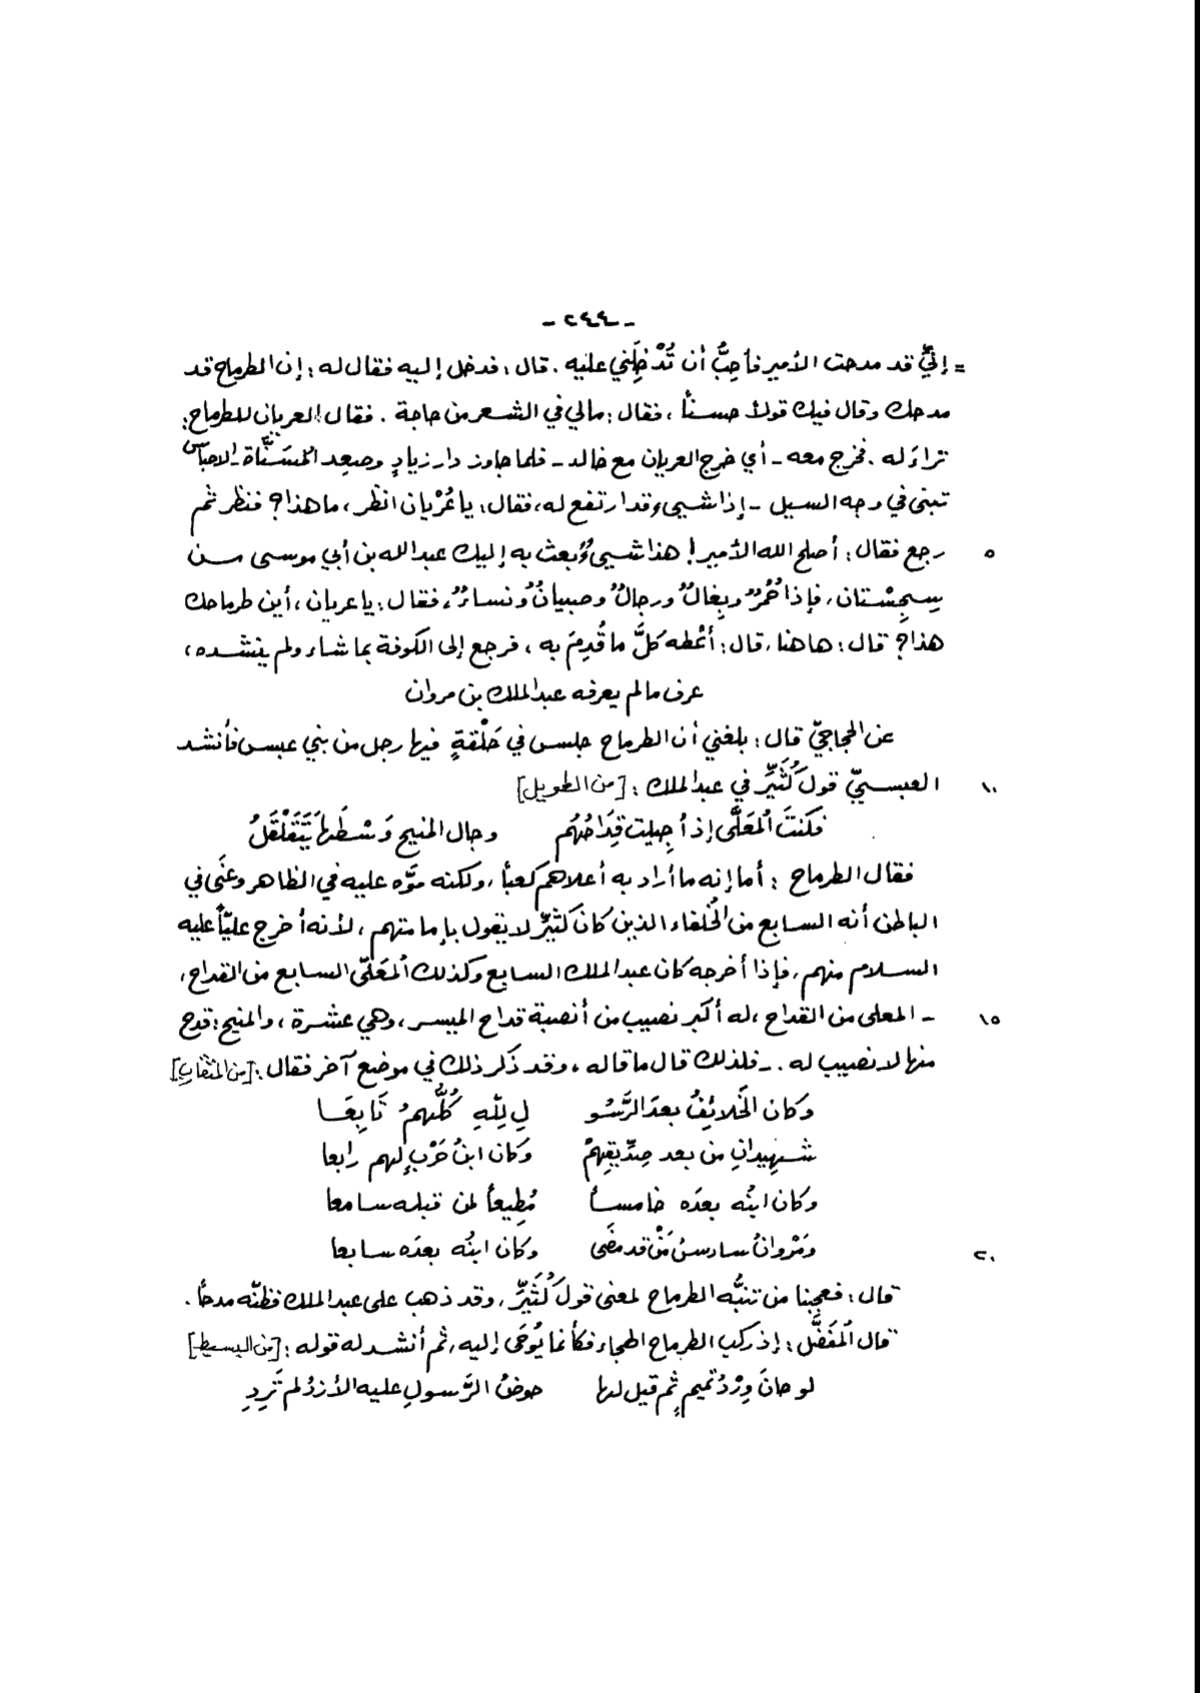 - ٢٤٤ -
= إنّي قد مدحت الأمير فأحِبُّ أن تُدْخِلَني عليه . قال : فدخل إليه فقال له : إن الطرماح قد
مدحك وقال فيك قولاً حسناً ، فقال : مالي في الشعر من حاجة . فقال العريان للطرماح :
تراءَ له . فخرج معه - أي خرج العريان مع خالد - فلما جاوز دار زيادٍ وصعد المُسَنَّاة - الاحباس
تبنى في وجه السيل - إذا شيىء قد ارتفع له ، فقال : يا عُرْيان انظر ، ما هذا ؟ فنظر ثم
رجع فقال : أصلح الله الأمير ! هذا شيىءٌ بعث به إليك عبد الله بن أبي موسى من ٥
سِجِسْتان ، فإذا حُمُرٌ وبِغالٌ ورجالٌ وصبيانٌ ونساءٌ ، فقال : يا عريان ، أين طرماحك
هذا ؟ قال : هاهنا ، قال : أعْطه كلَّ ما قُدِمَ به ، فرجع إلى الكوفة بما شاء ولم ينشده ،
عرف مالم يعرفه عبد الملك بن مروان
عن الحجاجيّ قال : بلغني أن الطرماح جلس في حَلْقةٍ فيها رجل من بني عبس فأنشد
العبسيّ قولَ كُثَيِّر في عبد الملك : [من الطويل] ١٠
فكنتَ المُعَلَّى إذ أجِيلت قِدَاحُهُم وجال المنيح وَسْطَهَا يَتَقَلْقَلُ
فقال الطرماح : أما إنه ما أراد به أعلاهم كعباً ، ولكنه موَّه عليه في الظاهر وعَنَى في
الباطن أنه السابع من الخُلفاء الذين كان كُثيِّرٌ لا يقول بإمامتهم ، لأنه أخرج عليّاً عليه
السلام منهم ، فإذا أخرجه كان عبد الملك السابع وكذلك المُعَلّى السابع من القداح ،
- المعلى من القداح ، له أكبر نصيب من أنصبة قداح الميسر ، وهي عشرة ، والمنيح : قدح ١٥
منها لا نصيب له . - فلذلك قال ما قاله ، وقد ذكر ذلك في موضع آخر فقال : [من المتقارب]
وكان الخَلائِفُ بعدَ الرَّسُو لِ لِلّهِ كُلُّهمُ تَابِعَا
شهيدانِ من بعد صِدّيقِهِمْ وكان ابنُ حَرْبٍ لهم رابعا
وكان ابنُه بعدَه خامساً مُطِيعاً لمن قبله سامعا
ومَرْوانُ سادسُ مَنْ قد مضَى وكان ابنُه بعدَه سابعا ٢٠
قال : فعجبنا من تنبُّه الطرماح لمعنى قول كُثَيِّر ، وقد ذهب على عبد الملك فظنّه مدحاً .
قال المُفَضَّل : إذا ركب الطرماح الهجاء فكأنما يُوحَى إليه ، ثم أنشد له قوله : [من البسيط]
لو حانَ وِرْدُ تميمٍ ثم قيل لها حوضُ الرَّسولِ عليه الأزدُ لم تَرِدِ